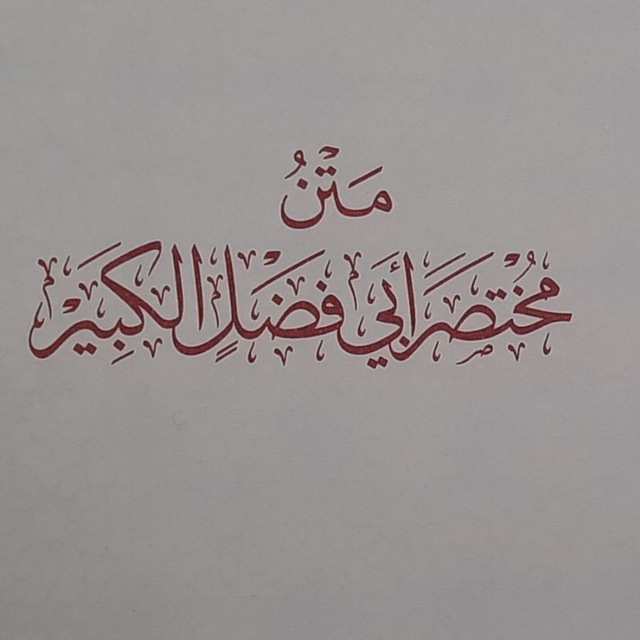 مَتْنُ
مُخْتَصَرَ أَبَي فَضَلٍ الْكَبِيَرْ